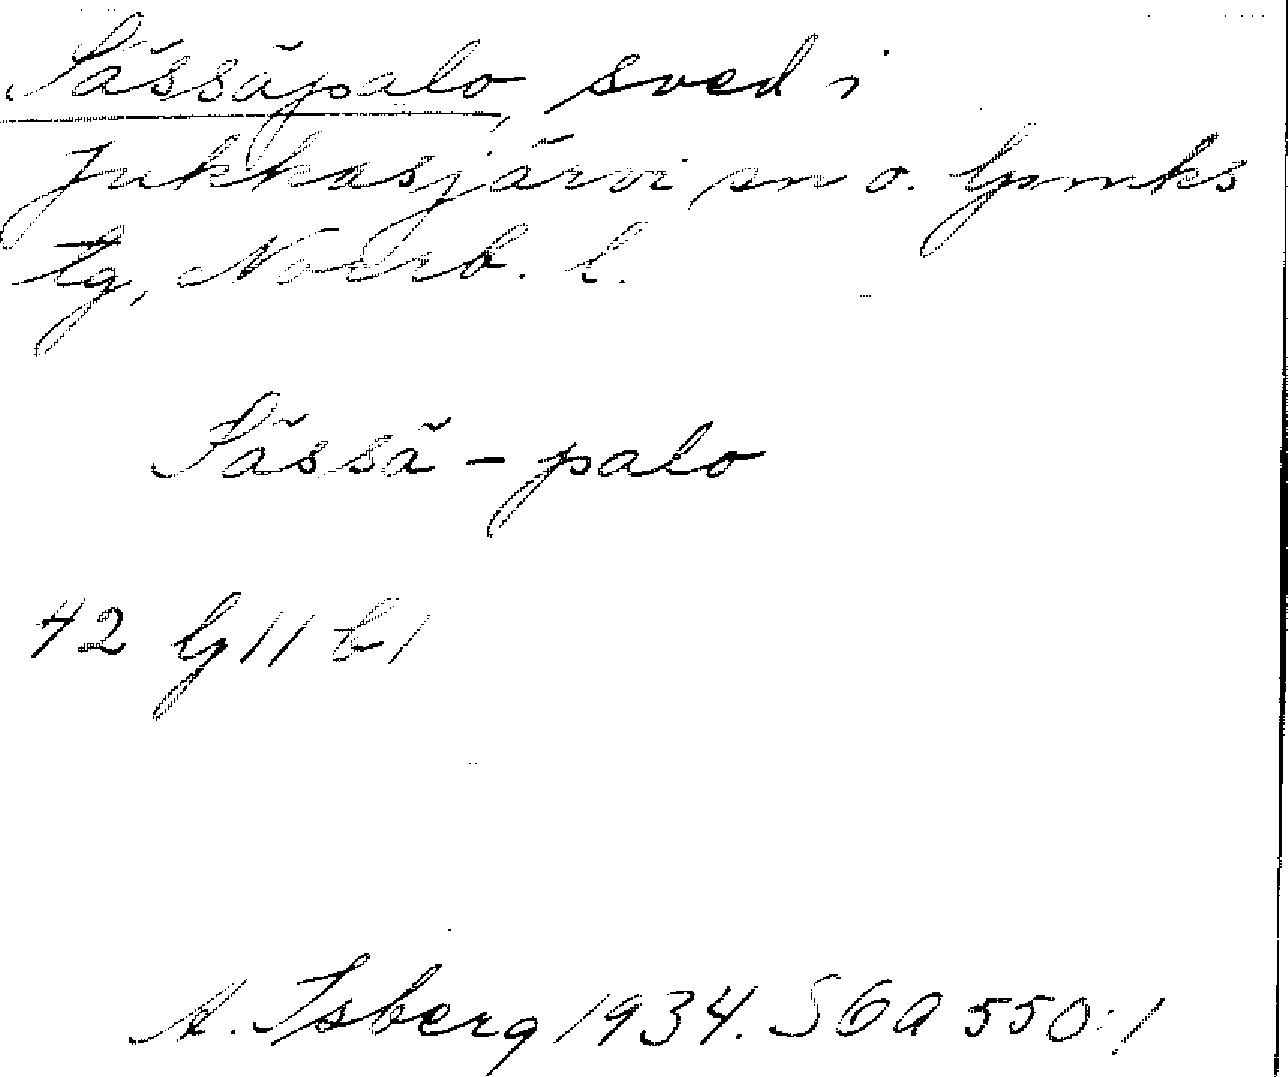 Sässäpalo, sved i
Jukkasjärvi sn o. lpmks
tg, Norrb. l.
Sässä - palo
42 lg 11 b 1
A. Isberg 1934. SOA 550:1